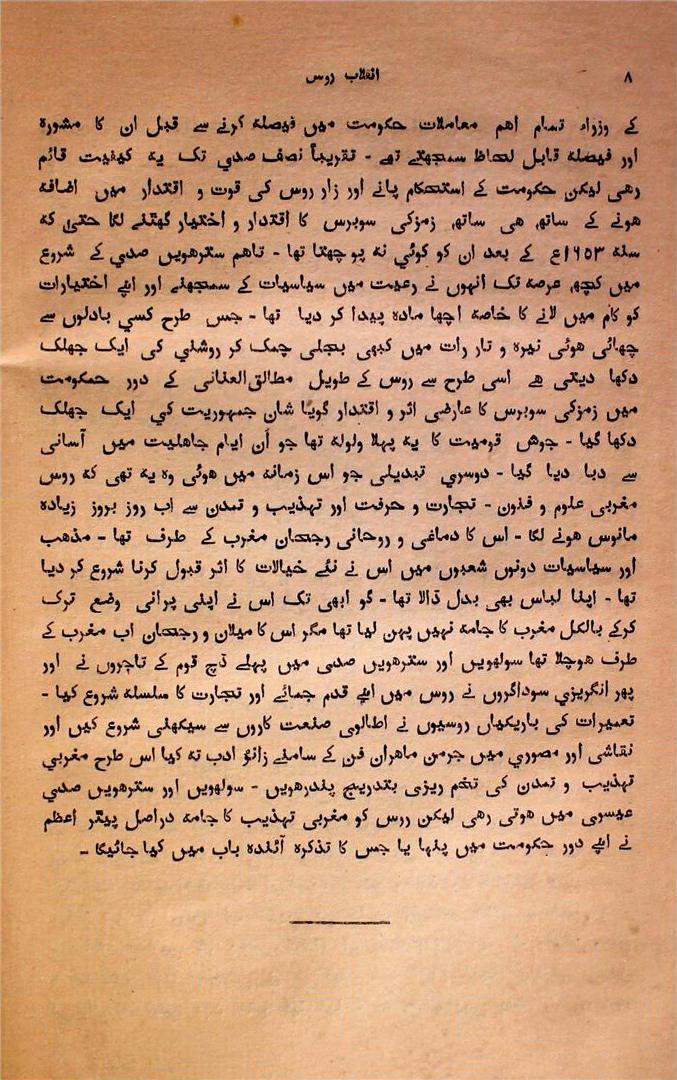 ۸ انقلاب روس
کے وزراء تمام اهم معاملات حکومت میں فیصلہ کرنے سے قبل ان کا مشورہ
اور فیصلہ قابل لحاظ سمجھتے تھے - تقریباً نصف صدی تک یہ کیفیت قائم
رهی لیکن حکومت کے استحکام پانے اور زار روس کی قوت و اقتدار میں اضافہ
هونے کے ساتھ هی ساتھ زمزکی سوبرس کا اقتدار و اختیار گھٹنے لگا حتیٰ کہ
سنہ ۱۶۵۳ع کے بعد ان کو کوئی نہ پوچھتا تھا - تاهم سترهویں صدی کے شروع
میں کچھ عرصہ تک انہوں نے رعیت میں سیاسیات کے سمجھنے اور اپنے اختیارات
کو کام میں لانے کا خاصہ اچھا مادہ پیدا کر دیا تھا - جس طرح کسی بادلوں سے
چھائی هوئی تیرہ و تار رات میں کبھی بجلی چمک کر روشنی کی ایک جھلک
دکھا دیتی هے اسی طرح سے روس کے طویل مطالق العنانی کے دور حمکومت
میں زمزکی سوبرس کا عارضی اثر و اقتدار گویا شان جمہوریت کی ایک جھلک
دکھا گیا - جوش قومیت کا یہ پہلا ولولہ تھا جو اُن ایام جاهلیت میں آسانی
سے دبا دیا گیا - دوسری تبدیلی جو اس زمانہ میں هوئی وہ یہ تھی کہ روس
مغربی علوم و فنون - تجارت و حرفت اور تہذیب و تمدن سے اب روز بروز زیادہ
مانوس هونے لگا - اس کا دماغی و روحانی رجحان مغرب کے طرف تھا - مذهب
اور سیاسیات دونوں شعبوں میں اس نے نئے خیالات کا اثر قبول کرنا شروع کر دیا
تھا - اپنا لباس بھی بدل ڈالا تھا - گو ابھی تک اس نے اپنی پرانی وضع ترک
کرکے بالکل مغرب کا جامہ نہیں پہن لیا تھا مگر اس کا میلان و رجحان اب مغرب کے
طرف هوچلا تھا سولھویں اور سترهویں صدی میں پہلے ڈچ قوم کے تاجروں نے اور
پھر انگریزی سوداگروں نے روس میں اپنے قدم جمائے اور تجارت کا سلسلہ شروع کیا -
تعمیرات کی باریکیاں روسیوں نے اطالوی صنعت کاروں سے سیکھنی شروع کیں اور
نقاشی اور مصوری میں جرمن ماهران فن کے سامنے زانؤ ادب تہ کیا اس طرح مغربی
تہذیب و تمدن کی تخم ریزی بتدریج پندرهویں - سولھویں اور سترهویں صدی
عیسوی میں هوتی رهی لیکن روس کو مغربی تہذیب کا جامہ دراصل پیٹر اعظم
نے اپنے دور حکومت میں پنہا یا جس کا تذکرہ آئندہ باب میں کیا جائیگا -